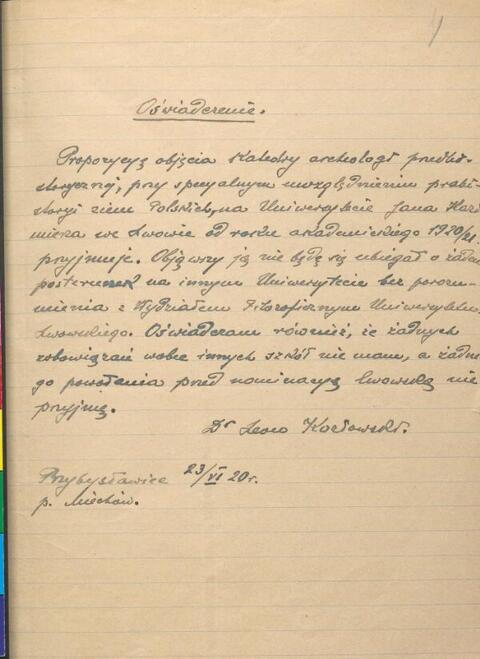 Oświadczenie.
Propozycję objęcia Katedry archeologi przedhi-
storycznej, przy specyalnym uwzględnieniu prahi-
storyi ziem Polskich, na Uniwersytecie Jana Kazi
mierza we Lwowie od roku akademickiego 1920/21.
przyjmuję. Objąwszy ją nie będę się ubiegał o żaden
posterunek na innym Uniwersytecie bez porozu-
mienia z Wydziałem Filozoficznym Uniwersytetu
Lwowskiego. Oświadczam również, że żadnych
zobowiązań wobec innych szkół nie mam, a żadne-
go powołania przed nominacyą lwowską nie
przyjmię.
Dr Leon Kozłowski.
Przybysławice 23/VI 20r.
p. Miechów.